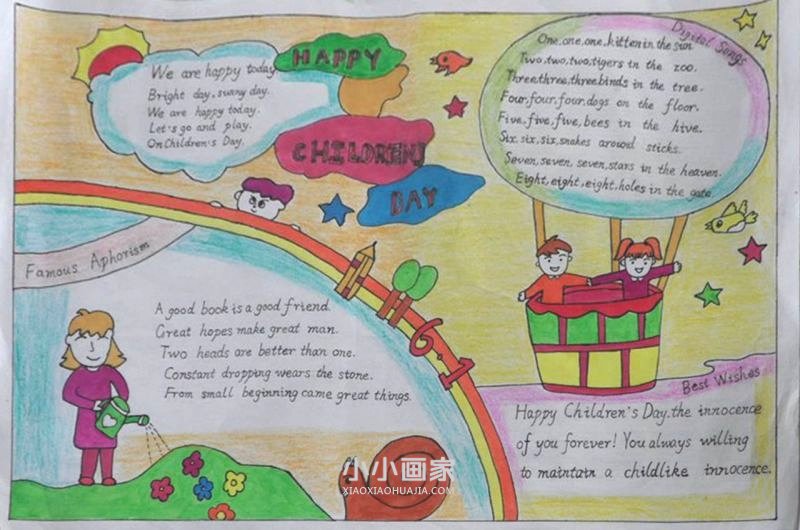 We are happy today.
Bright day, sunny day.
We are happy today.
Let's go and play.
On Children's Day.
HAPPY
CHILDREN'S
DAY
Digital Songs
One, one, one, kitten in the sun
Two, two, two, tigers in the zoo.
Three, three, three, birds in the tree.
Four, four, four, dogs on the floor.
Five, five, five, bees in the hive.
Six, six, six, snakes around sticks.
Seven, seven, seven, stars in the heaven.
Eight, eight, eight, holes in the gate.
Famous Aphorism
A good book is a good friend.
Great hopes make great man.
Two heads are better than one.
Constant dropping wears the stone.
From small beginning came great things.
6.1
Best Wishes
Happy Children's Day. the innocence
of you forever! You always willing
to maintain a childlike innocence.
小小画家
XIAOXIAOHUAJIA.COM